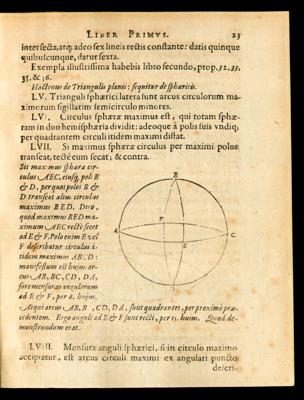 LIBER PRIMUS. 23
intersecta, atq; adeo sex lineis rectis constante: datis quinque
quibuscunque, datur sexta.
Exempla illustrissima habebis libro secundo, prop. 32. 33.
35. & 36.
Hactenus de Triangulis planis: sequitur de sphæricis.
LV. Trianguli sphærici latera sunt arcus circulorum ma-
ximorum sigillatim semicirculo minores.
LVI. Circulus sphæræ maximus est, qui totam sphæ-
ram in duo hemisphæria dividit: adeoque à polis suis undiq;
per quadrantem circuli itidem maximi distat.
LVII. Si maximus sphæræ circulus per maximi polos
transeat, rectè eum secat; & contra.
Sit maximus sphæræ cir-
culus AEC, eiusq; poli B
& D, per quos polos B &
D transeat alius circulus
maximus BED. Dico,
quod maximus BED ma-
ximum AEC rectè secet
ad E & F. Polo enim E vel
F describatur circulus i-
tidem maximus ABCD:
manifestum est hujus ar-
cus AB, BC, CD, DA,
fore mensuras angulorum
ad E & F, per 8. hujus.
B
F
A
C
E
D
Atqui arcus AB, B C, CD, DA, sunt quadrantes, per proximè præ-
cedentem. Ergo anguli ad E & F sunt recti, per hujus. Quod de-
monstrandum erat.
LVIII. Mensura anguli sphærici, si in circulo maximo
accipiatur, est arcus circuli maximi ex angulari puncto
descri-